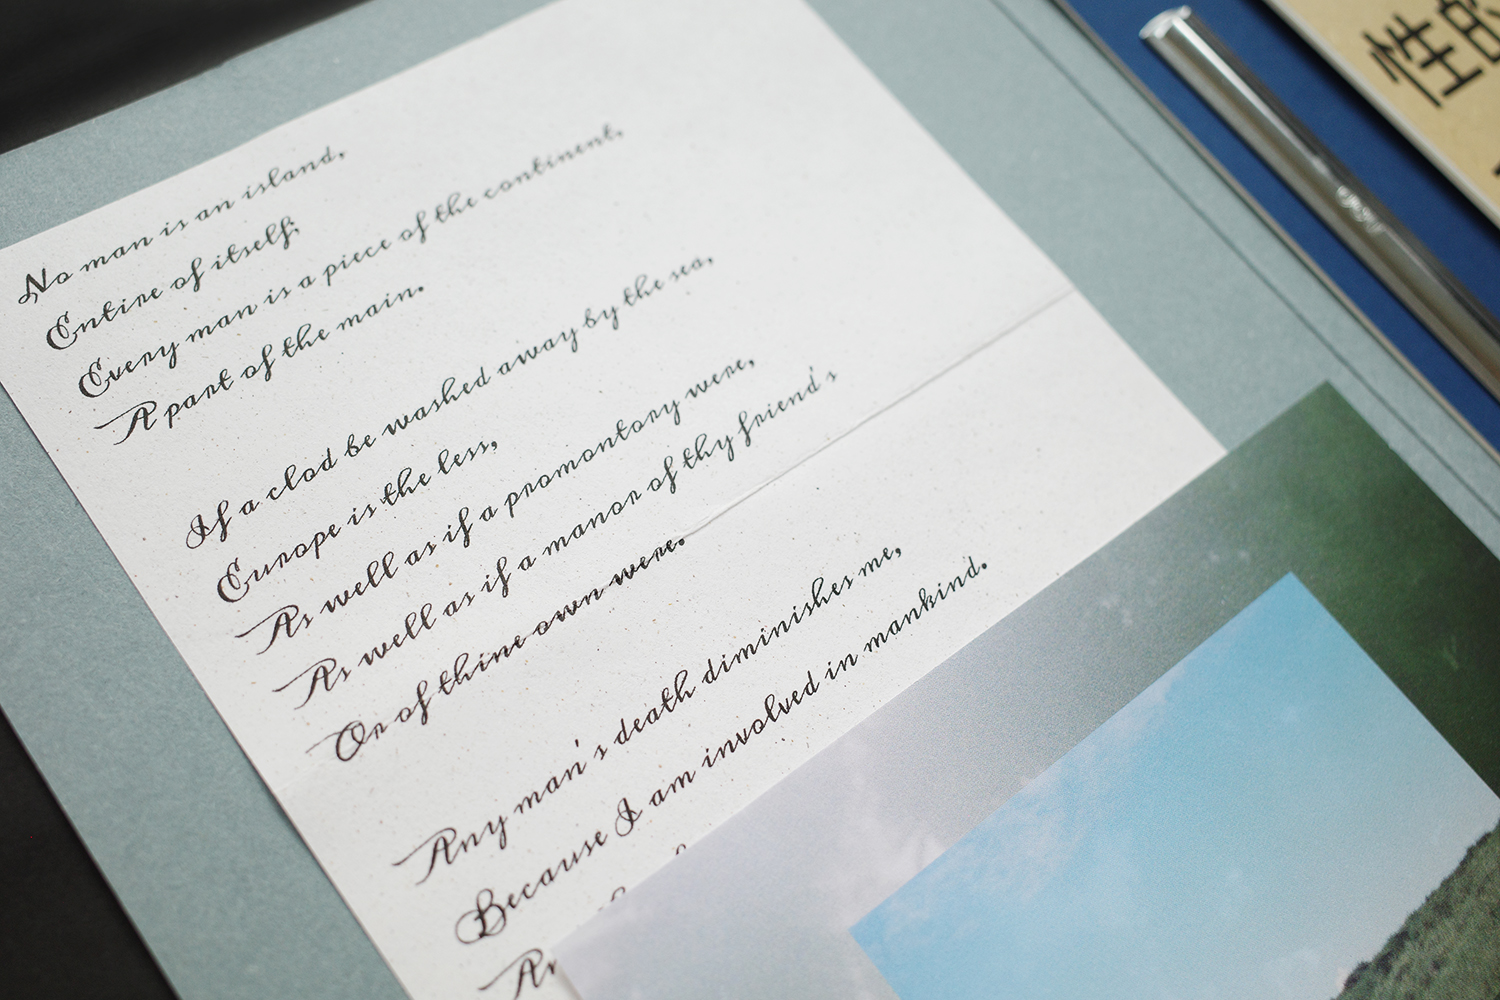 No man is an island,
Entire of itself;
Every man is a piece of the continent,
A part of the main.
If a clod be washed away by the sea,
Europe is the less,
As well as if a promontory were,
As well as if a manor of thy friend's
Or of thine own were.
Any man's death diminishes me,
Because I am involved in mankind.